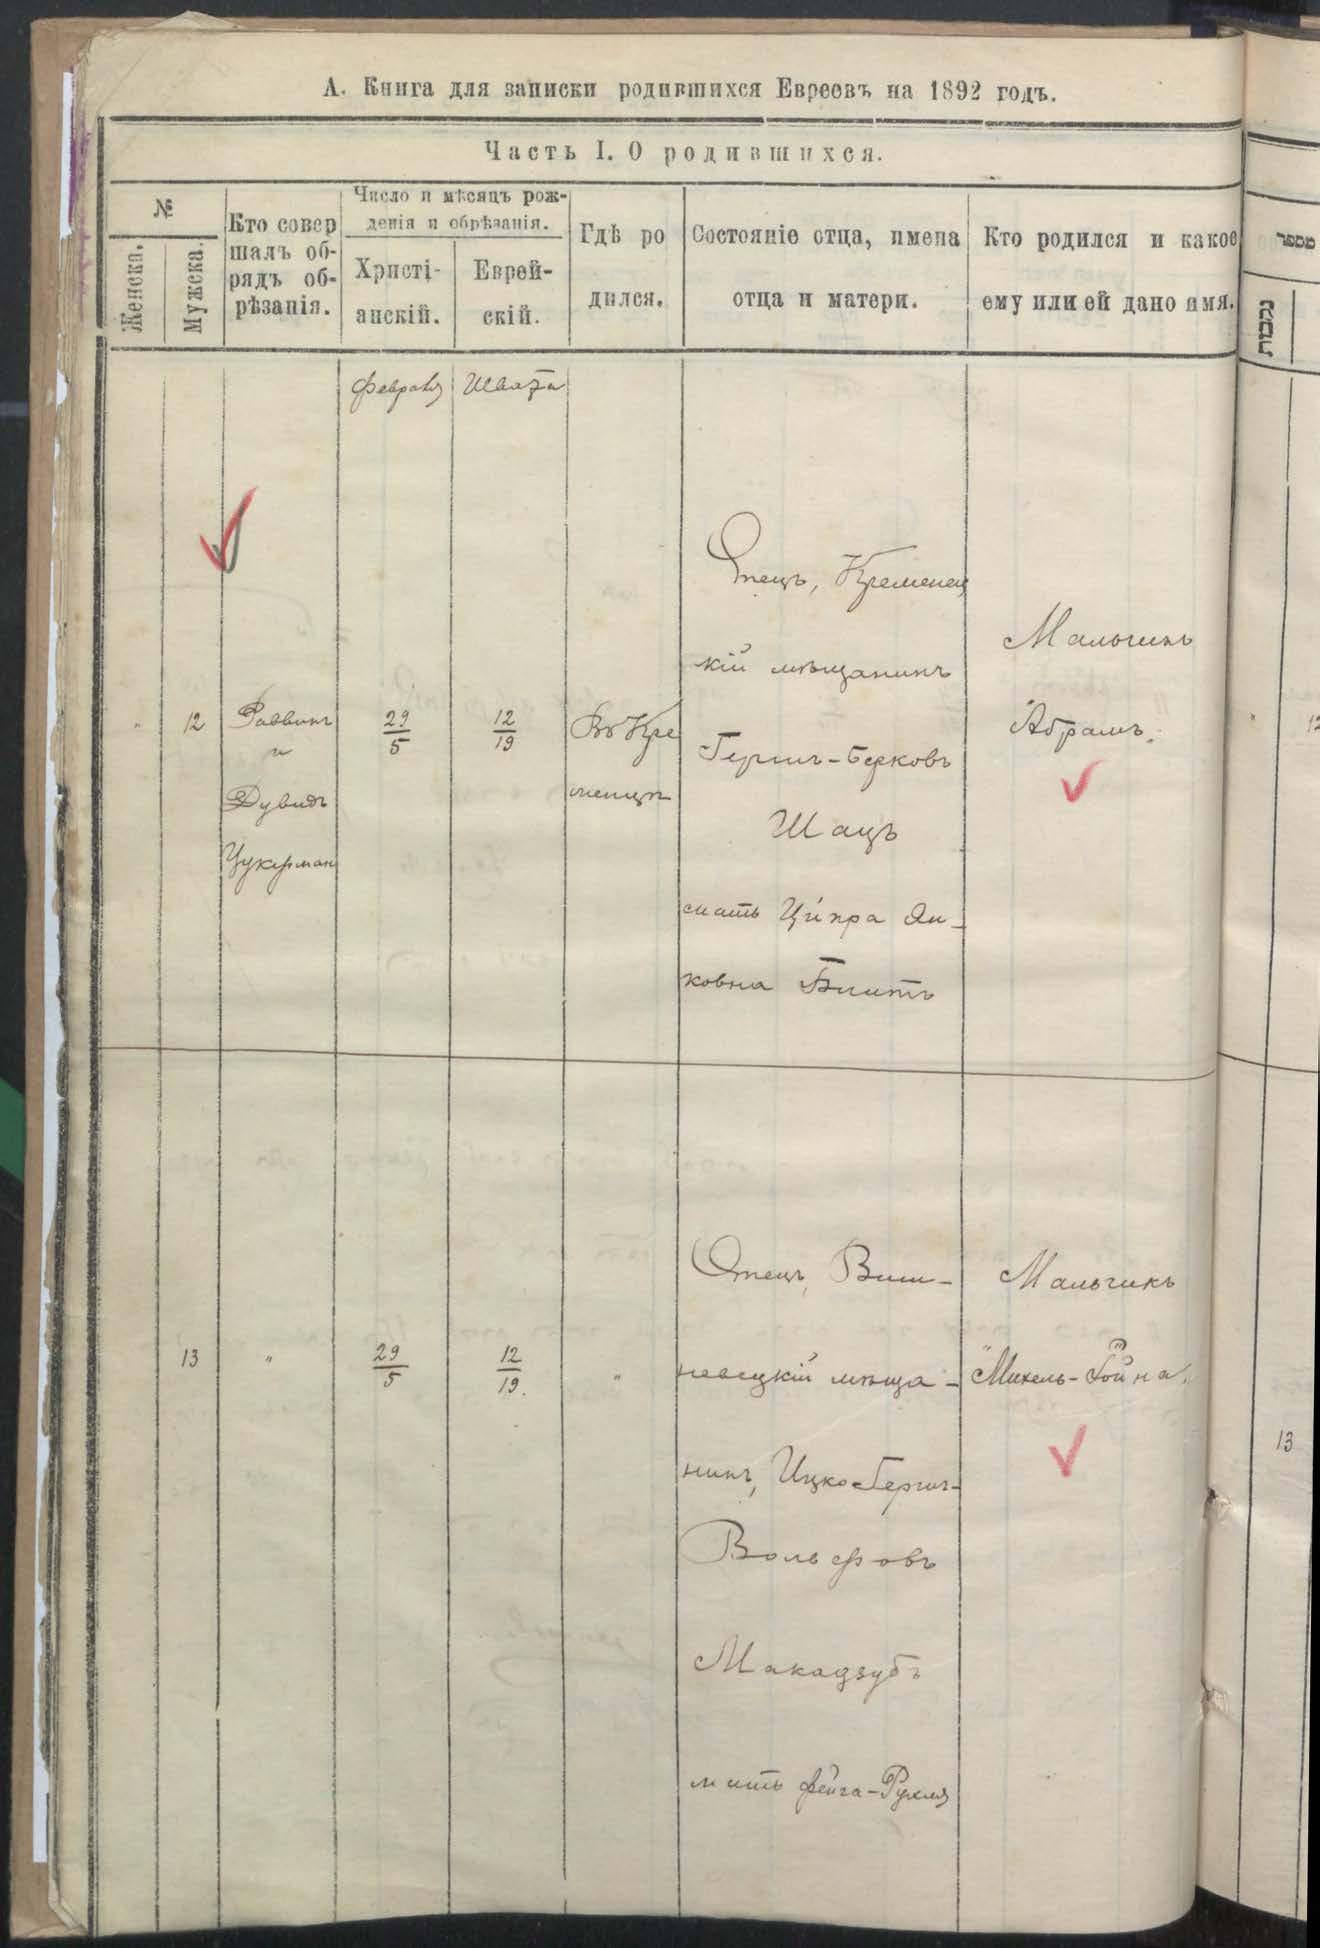 А. Книга для записки родившихся Евреевъ на 1892 годъ.
Часть I. О родившихся.
№
Женска.
Мужска.
Кто совер
шалъ об-
рядъ об-
рѣзанія.
Число и мѣсяцъ рож-
денія и обрѣзанія.
Христі-
анскій.
Еврей-
скій.
Гдѣ ро
дился.
Состояніе отца, имена
отца и матери.
Кто родился и какое
ему или ей дано имя.
מספר
נקבות
Февраля
Швата
"
12
Раввинъ
и
Дувидъ
Цукерман
29
5
12
19
Въ Кре
менцѣ
Отецъ, Кременец
кій мѣщанинъ
Гершъ-Берковъ
Шацъ
мать Ципра Ян-
ковна
Мальчикъ
"Абрамъ"
" 12
13
"
29
5
12
19.
"
Отецъ, Виш-
невецкій мѣща-
нинъ, Ицко Гершъ-
Вольфовъ
Макадзубъ
мать Фейга-Рухля
Мальчикъ
"Михель-
13